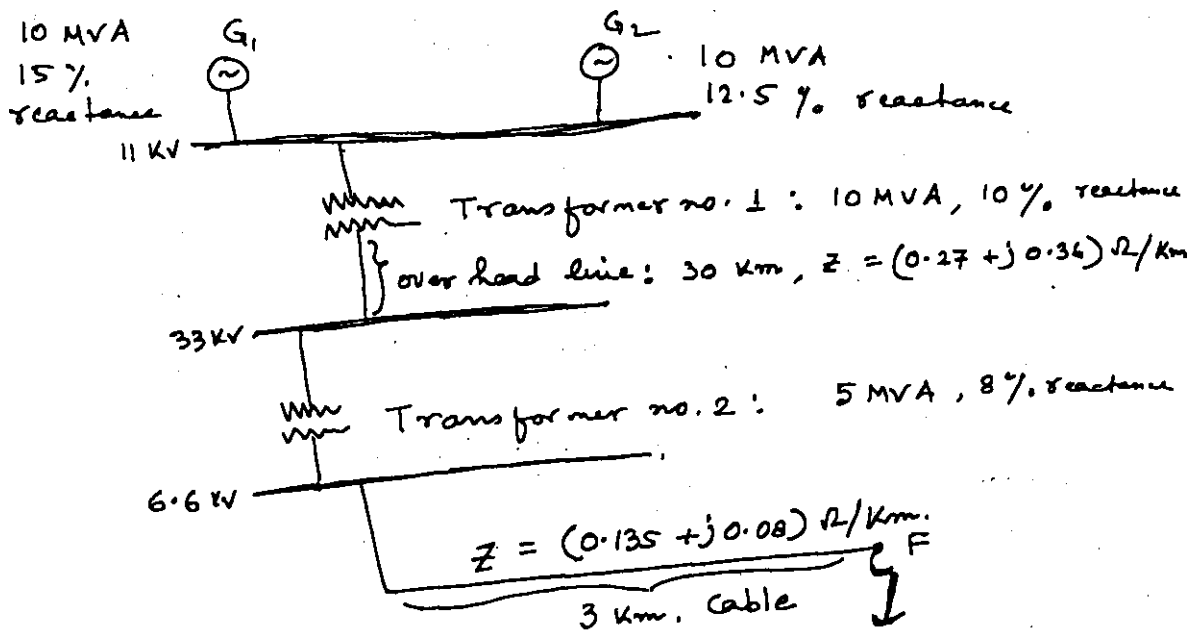 10 MVA
15 %
reactance
G1
G2
10 MVA
12.5 % reactance
11 KV
Transformer no. 1 : 10 MVA, 10 % reactance
over head line : 30 Km, Z = (0.27 + j 0.36) Ω/Km
33 KV
Transformer no. 2 : 5 MVA, 8 % reactance
6.6 KV
Z = (0.135 + j 0.08) Ω/Km.
F
3 Km. Cable